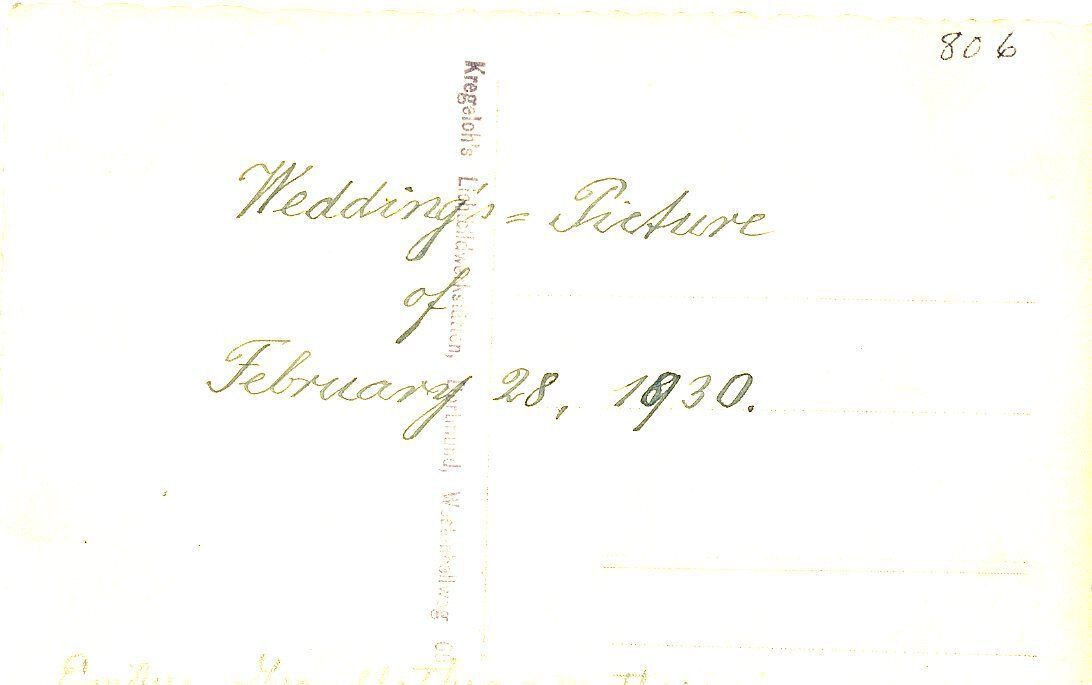 806
Wedding's = Picture
of
February 28, 1930.
Kregeloh's Lichtbildwerkstätten, Dortmund, Westenhellweg